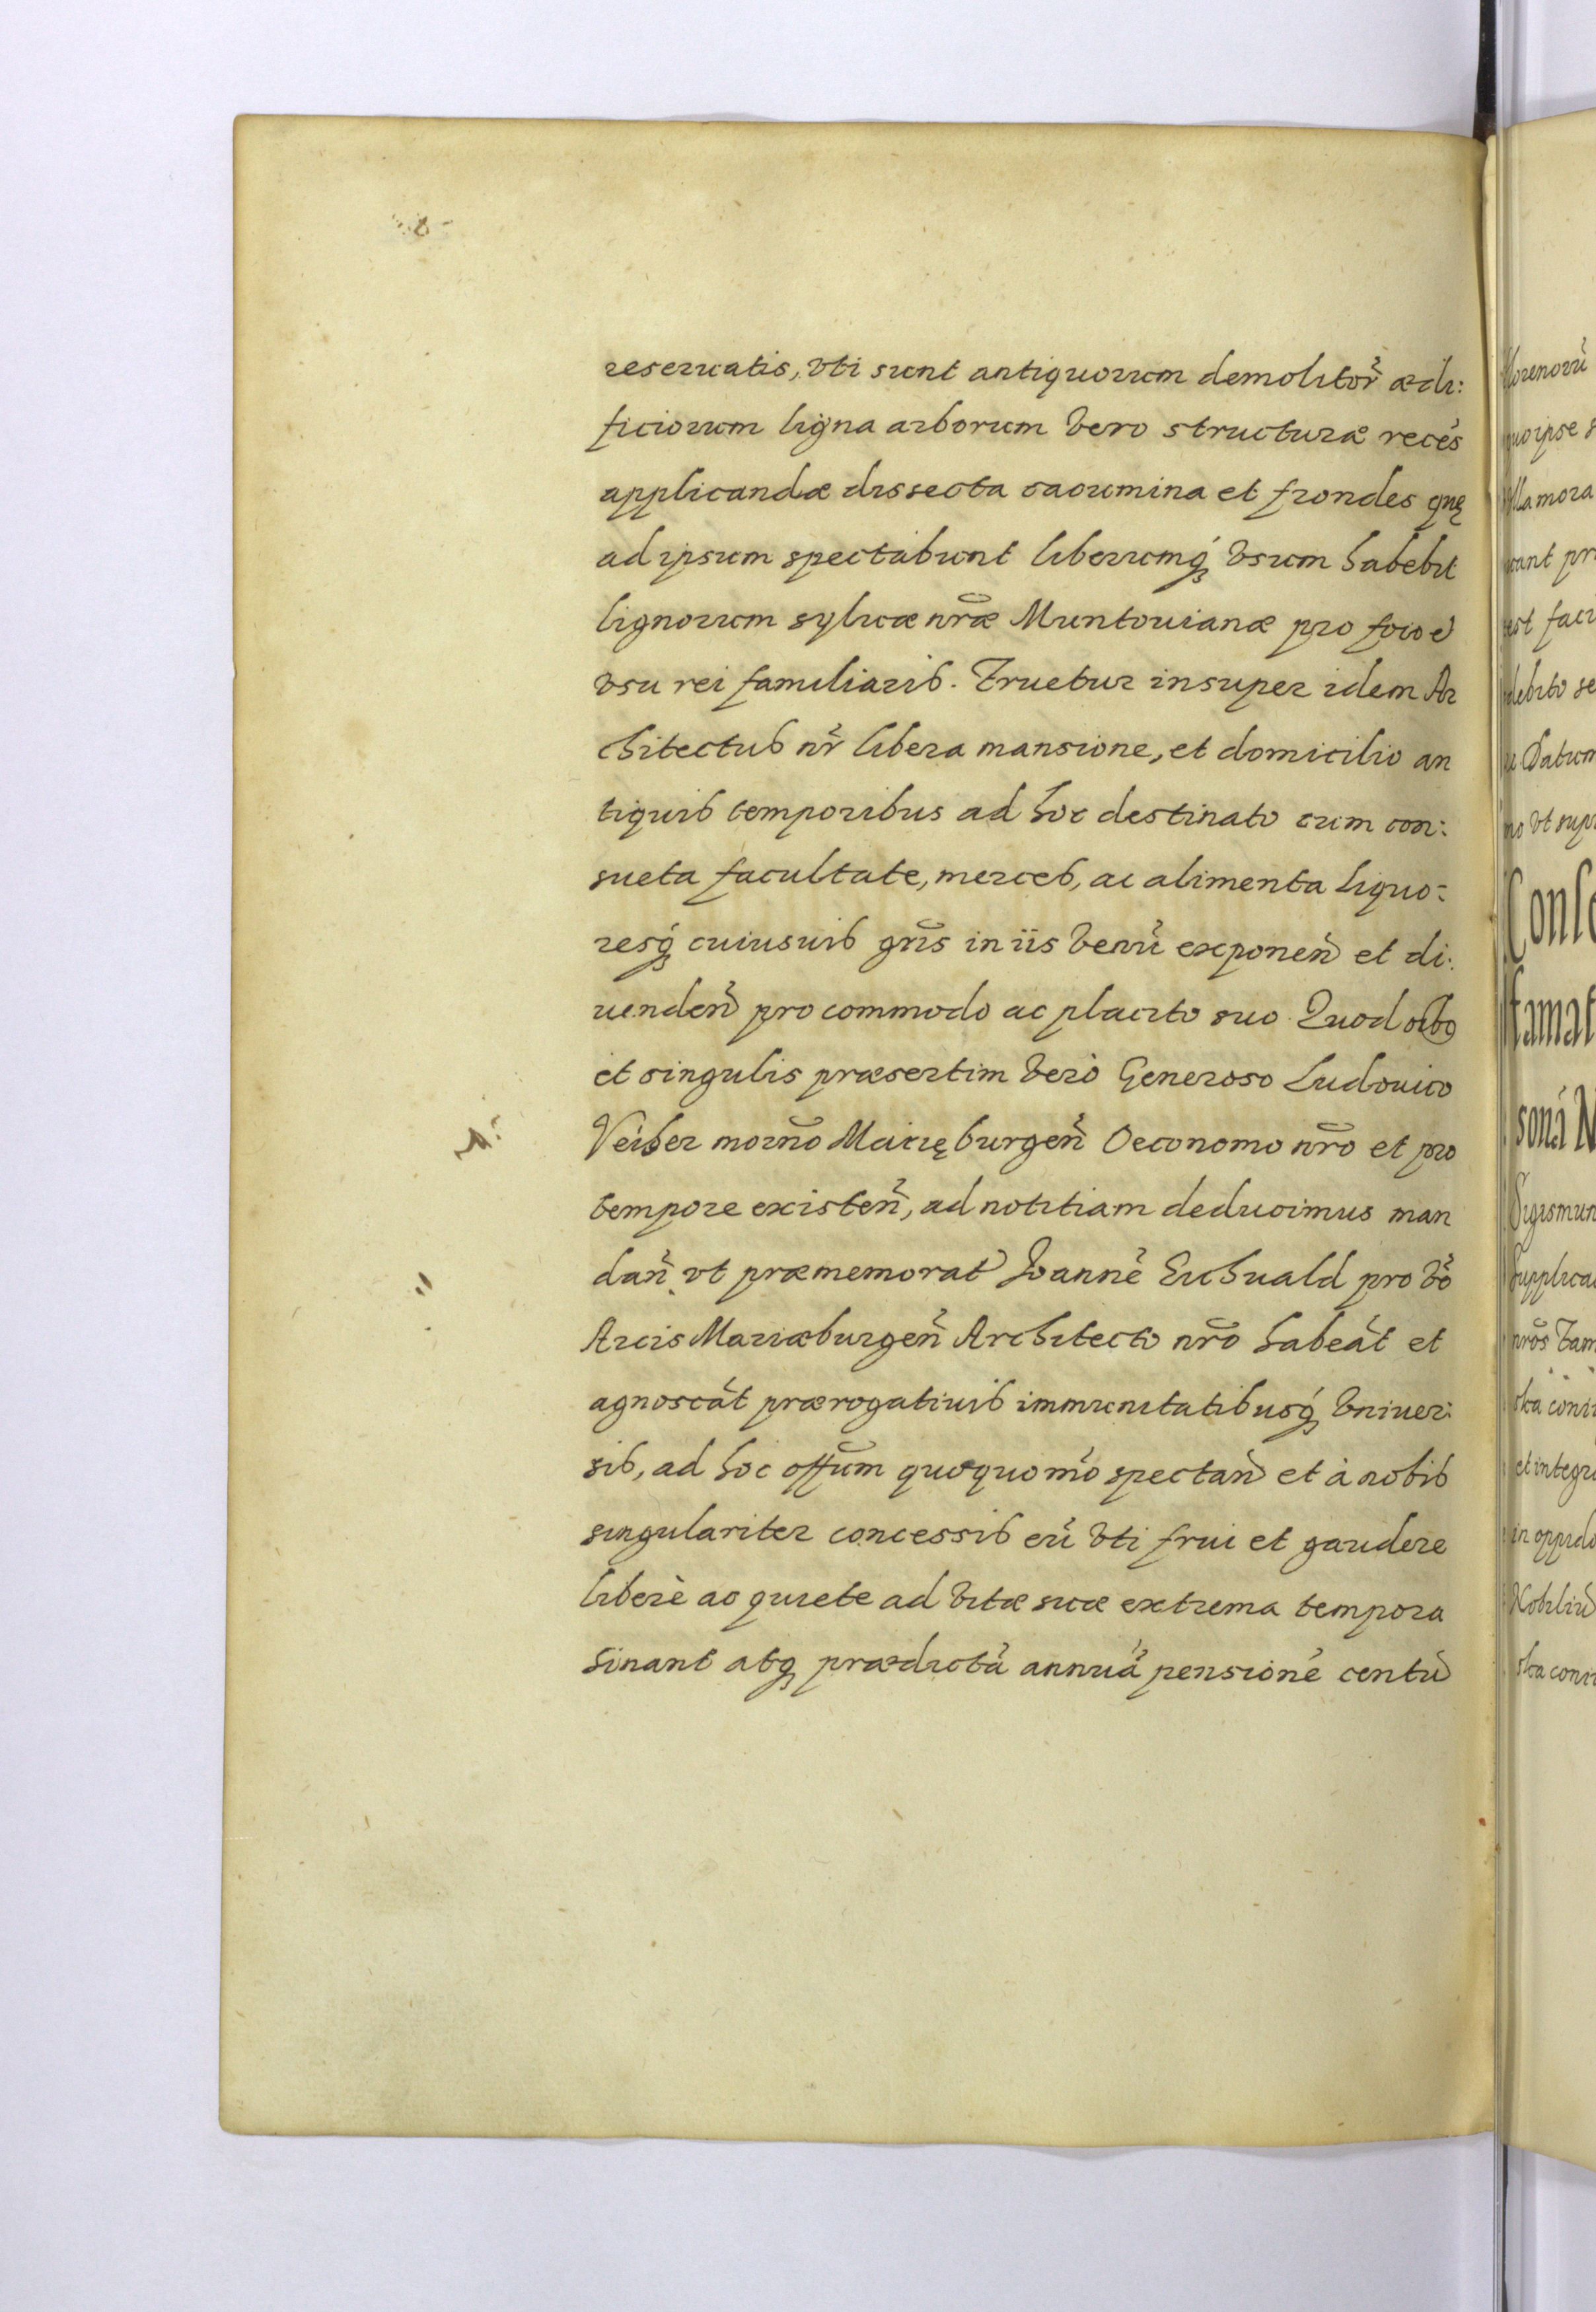 reseruatis, vti sunt antiquorum demolitor̃ ædi:
ficiorum ligna arborum vero structuræ recẽs
applicandæ dissecta cacumina et frondes quę
ad ipsum spectabunt liberumq́ȝ vsum habebit
lignorum syluæ nr̃æ Muntouianæ pro foco et
vsu rei familiaris. Fruetur insuper idem Ar
chitectus nr̃ libera mansione, et domicilio an
tiquis temporibus ad hoc destinato cum con:
sueta facultate, merces, ac alimenta liquo:
resq́ȝ cuiusuis gñis in iis venũ exponeñ et di:
uendeñ pro commodo ac placito suo. Quod oĩbȝ
et singulis præsertim verò Generoso Ludouico
Veiher moder̃no Marięburgeñ Oeconomo nr̃o et pro
tempore existeñ, ad notitiam deducimus man
dañ vt præmemorat Joannẽ Eichuald pro vẽo
Arcis Mariæburgeñ Architecto nr̃o habeãt et
agnoscãt prærogatiuis immunitatibusq́ȝ vniuer:
sis, ad hoc offm̃ quoquo mõ spectañ et à nobis
singulariter concessis eũ vti frui et gaudere
liberè ac quiete ad vitæ suæ extrema tempora
sinant atqȝ prædictã annuã pensionẽ centũ
Morenovũ
quo ipse s
vlla mora
cant pr
est faci
debito se
Datum
mo vt supr
Conse
stamat
sonã N
Sigismun
Supplica
nr̃os Fam
et integr
in oppido
Nobiliũ